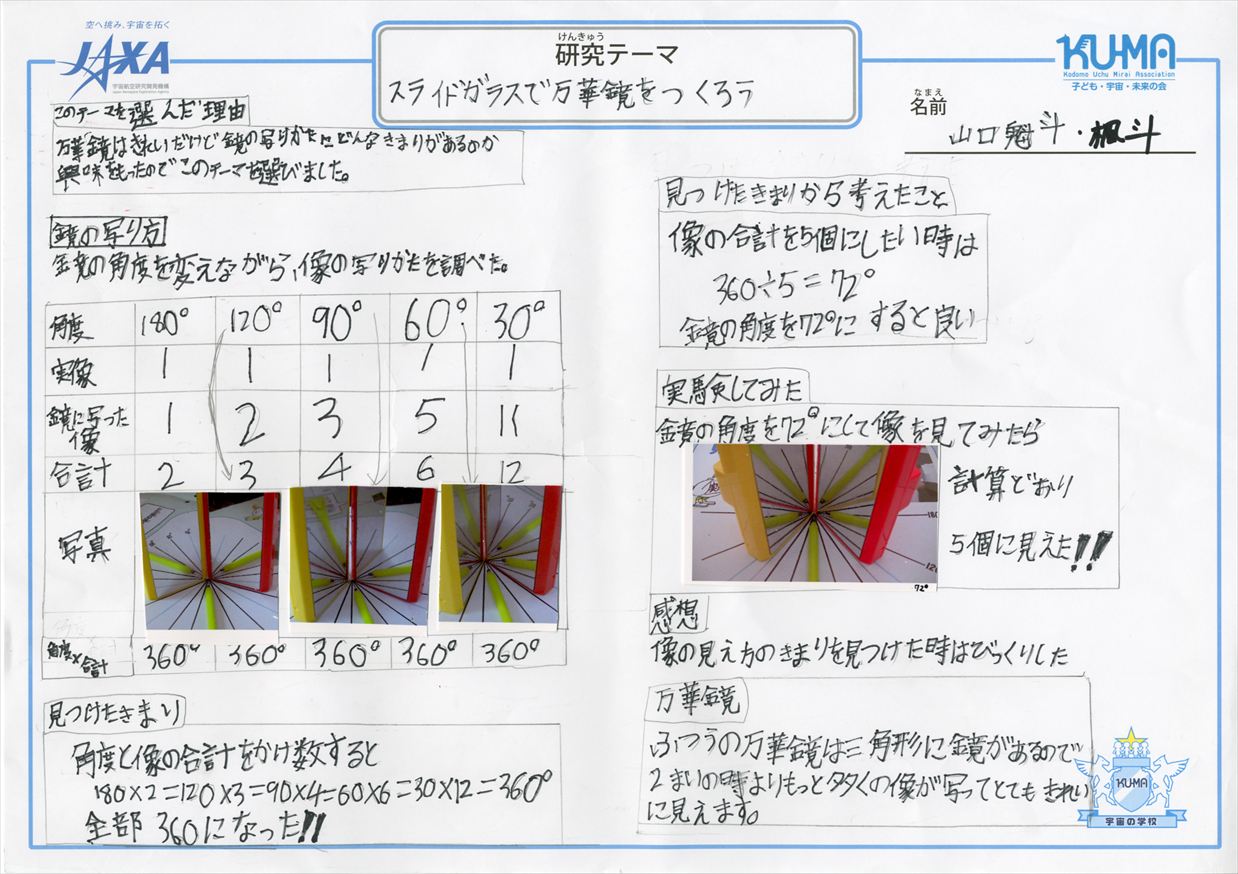 空へ挑み、宇宙を拓く
JAXA
宇宙航空研究開発機構
Japan Aerospace Exploration Agency
けんきゅう
研究テーマ
スライドガラスで万華鏡をつくろう
KU-MA
Kodomo Uchu Mirai Association
子ども・宇宙・未来の会
なまえ
名前
山口魁斗・楓斗
このテーマを選んだ理由
万華鏡はきれいだけど鏡の写りかたにどんなきまりがあるのか
興味をもったのでこのテーマを選びました。
鏡の写り方
鏡の角度を変えながら、像の写りかたを調べた。
角度 180° 120° 90° 60° 30°
実像 1 1 1 1 1
鏡に写った像 1 2 3 5 11
合計 2 3 4 6 12
写真
角度×合計 360° 360° 360° 360° 360°
見つけたきまり
角度と像の合計をかけ数すると
180×2=120×3=90×4=60×6=30×12=360°
全部 360になった!!
見つけたきまりから考えたこと
像の合計を5個にしたい時は
360÷5=72°
鏡の角度を72°にすると良い
実験してみた
鏡の角度を72°にして像を見てみたら
計算どおり
5個に見えた!!
72°
感想
像の見え方のきまりを見つけた時はびっくりした
万華鏡
ふつうの万華鏡は三角形に鏡があるので
2まいの時よりもっと多くの像が写ってとてもきれい
に見えます。
KU-MA
宇宙の学校